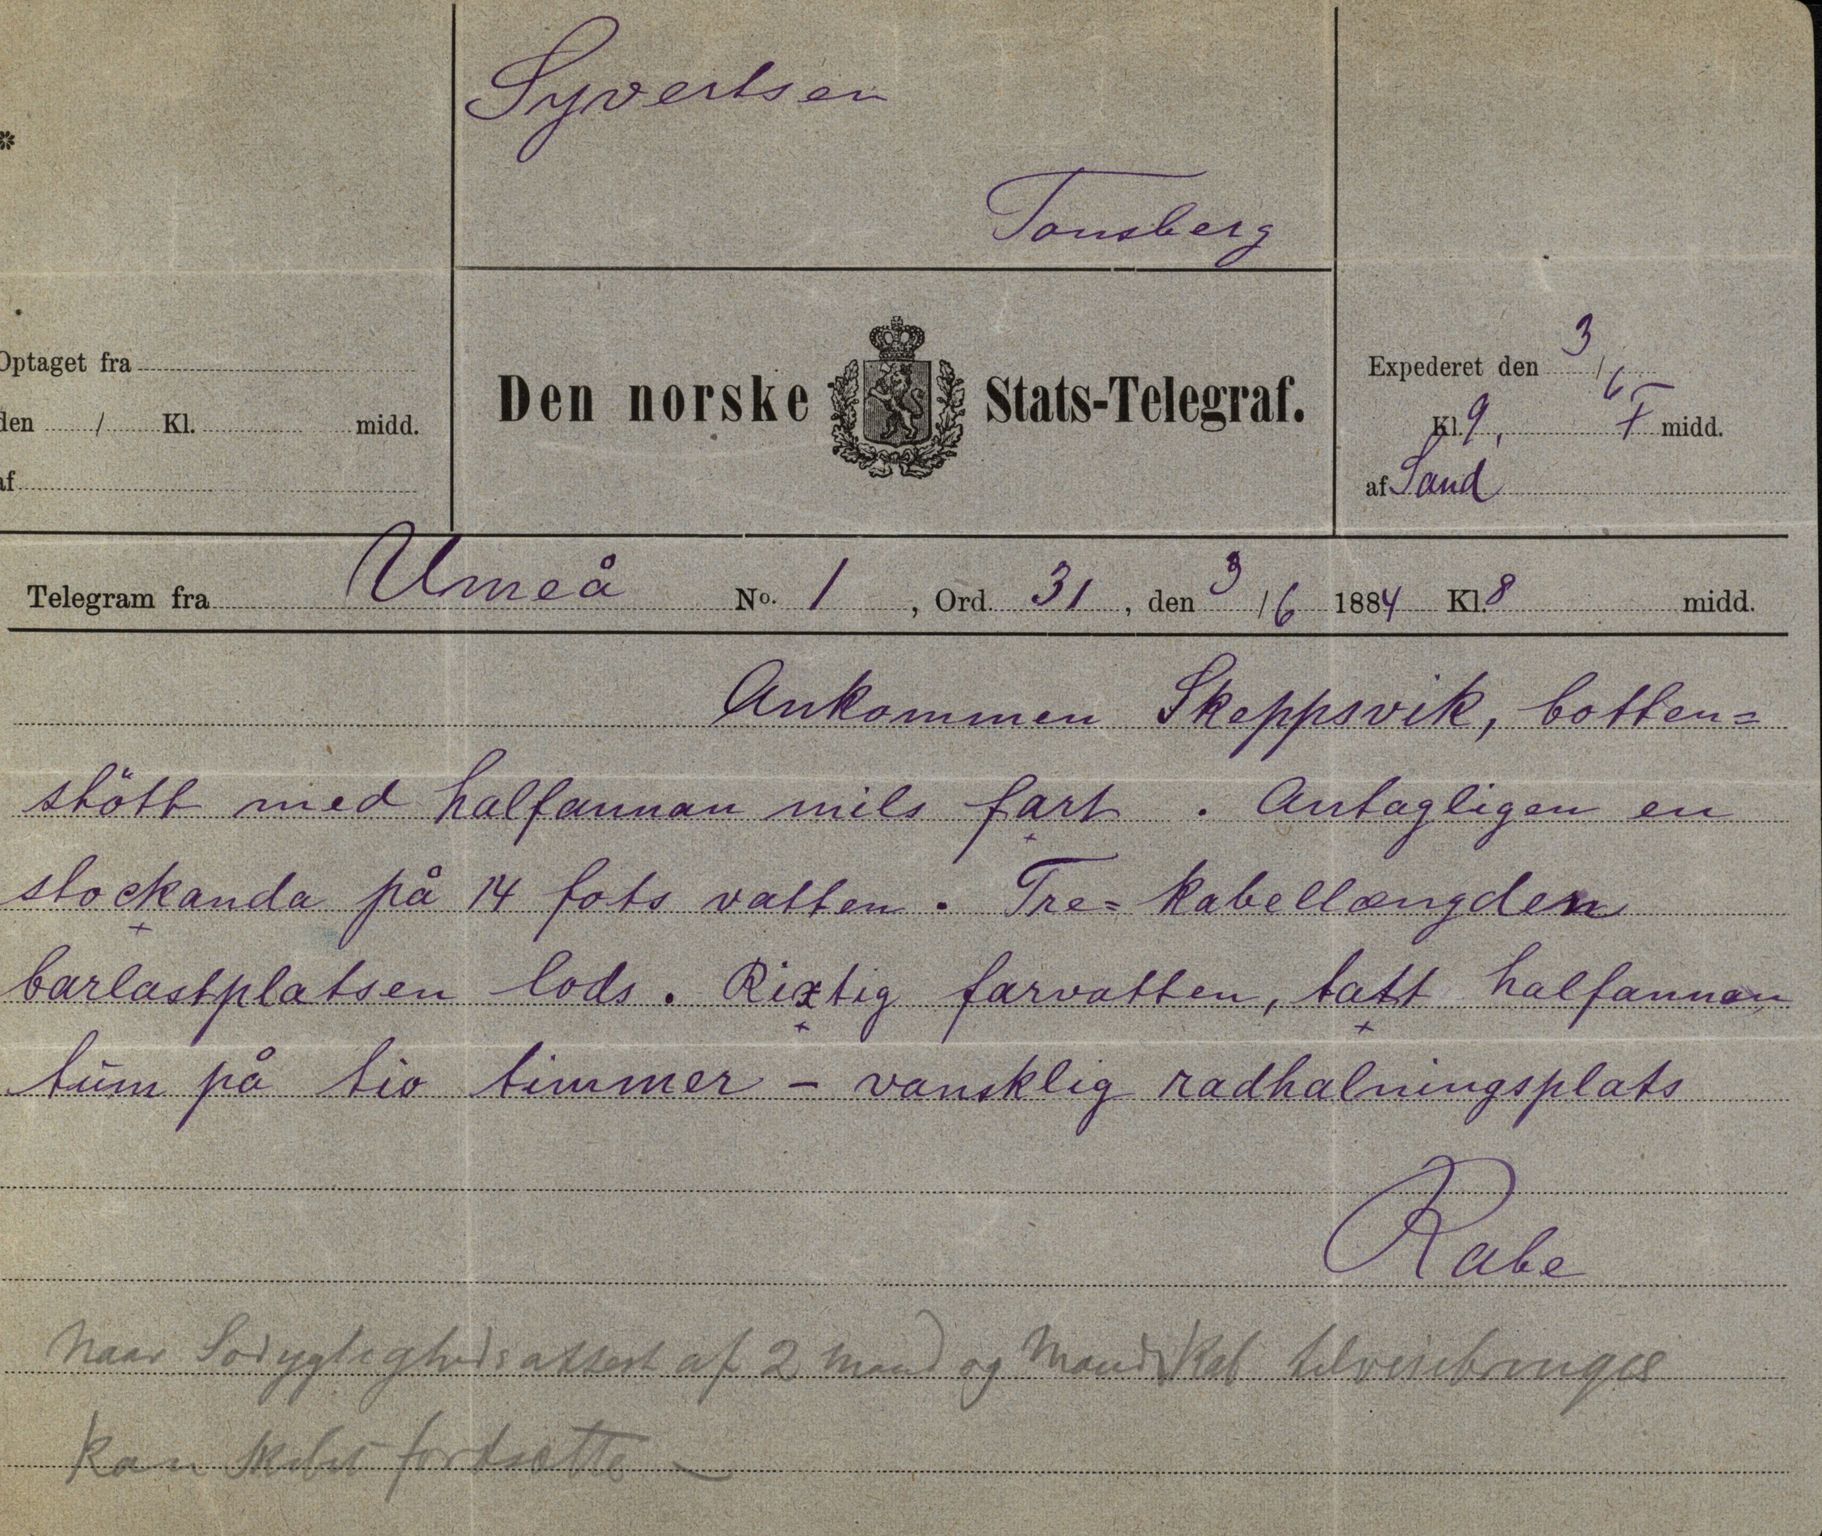 Syvertsen
Tonsberg
Optaget fra
den / Kl. midd.
af
Den norske Stats-Telegraf.
Expederet den 3/6
Kl. 9, F midd.
af Sand
Telegram fra Umeå No. 1, Ord. 31, den 3/6 1884 Kl. 8 midd.
Ankommen Skeppsvik, botten=
stött med halfannan mils fart. Antagligen en
stockanda på 14 fots vatten. Tre= kabellængden
barlastplatsen lods. Rixtig farvatten, tatt halfannan
tum på tio timmer - vansklig radhalningsplats
Rabe
Naar Sødygtighedsattest af 2 Mand og Mandskab tilveiebringes
kan skibet fortsætte -